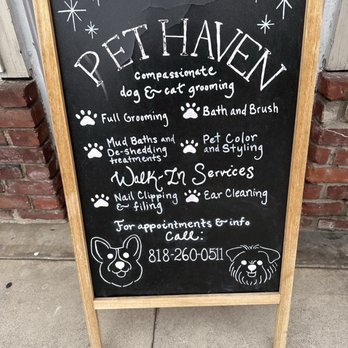 PET HAVEN
compassionate
dog & cat grooming
Full Grooming
Bath and Brush
Mud Baths and
De-shedding
treatments
Pet Color
and Styling
Walk-In Services
Nail Clipping
& filing
Ear Cleaning
For appointments & info
Call:
818-260-0511